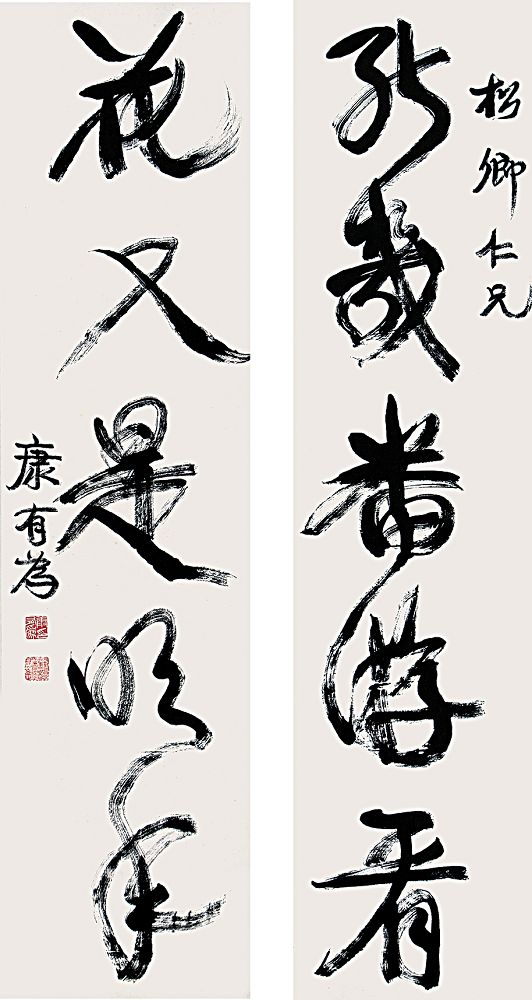 松卿仁兄
能幾番游看
花又是明年
康有為